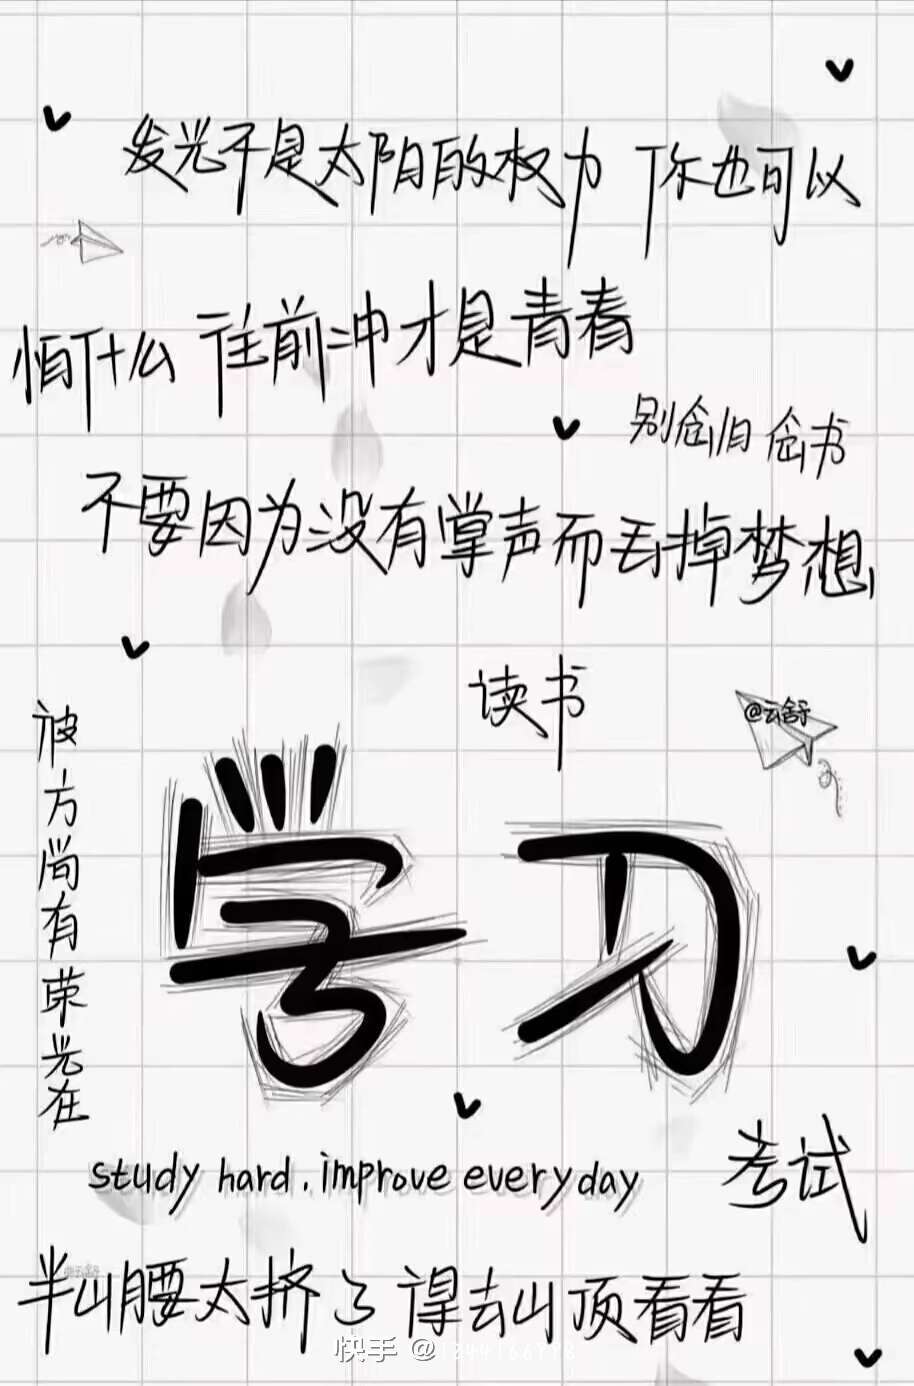 发光不是太阳的权力 你也可以
怕什么 往前冲才是青春
别念旧 念书
不要因为没有掌声而丢掉梦想
读书
@云舒
彼方尚有荣光在
学习
study hard.improve everyday
考试
半山腰太挤了 得去山顶看看
快手 @